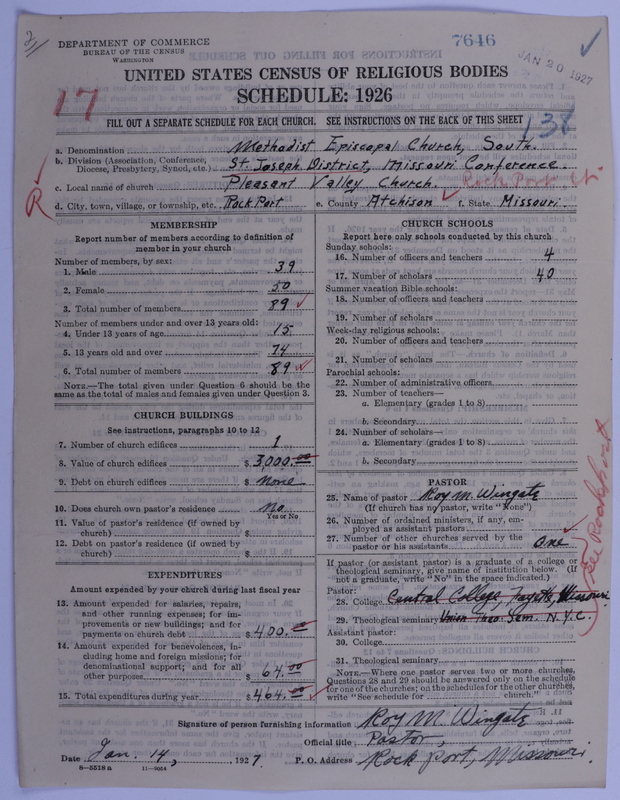 DEPARTMENT OF COMMERCE
BUREAU OF THE CENSUS
WASHINGTON
7646
JAN 20 1927
UNITED STATES CENSUS OF RELIGIOUS BODIES
SCHEDULE: 1926
17
138
FILL OUT A SEPARATE SCHEDULE FOR EACH CHURCH. SEE INSTRUCTIONS ON THE BACK OF THIS SHEET
a. Denomination Methodist Episcopal Church, South.
b. Division (Association, Conference, Diocese, Presbytery, Synod, etc.) St. Joseph District, Missouri Conference
c. Local name of church Pleasant Valley Church. Rock Port Ct.
R
d. City, town, village, or township, etc. Rock Port e. County Atchison f. State Missouri
MEMBERSHIP
Report number of members according to definition of
member in your church
Number of members, by sex:
1. Male 39
2. Female 50
3. Total number of members 89
Number of members under and over 13 years old:
4. Under 13 years of age 15
5. 13 years old and over 74
6. Total number of members 89
NOTE.—The total given under Question 6 should be the
same as the total of males and females given under Question 3.
CHURCH BUILDINGS
See instructions, paragraphs 10 to 12
7. Number of church edifices 1
8. Value of church edifices $ 3,000.00
9. Debt on church edifices $ None
10. Does church own pastor's residence No
Yes or No
11. Value of pastor's residence (if owned by
church) $
12. Debt on pastor's residence (if owned by
church) $
EXPENDITURES
Amount expended by your church during last fiscal year
13. Amount expended for salaries, repairs,
and other running expenses; for im-
provements or new buildings; and for
payments on church debt $ 400.00
14. Amount expended for benevolences, in-
cluding home and foreign missions; for
denominational support; and for all
other purposes $ 64.00
15. Total expenditures during year $ 464.00
CHURCH SCHOOLS
Report here only schools conducted by this church
Sunday schools:
16. Number of officers and teachers 4
17. Number of scholars 40
Summer vacation Bible schools:
18. Number of officers and teachers
19. Number of scholars
Week-day religious schools:
20. Number of officers and teachers
21. Number of scholars
Parochial schools:
22. Number of administrative officers
23. Number of teachers—
a. Elementary (grades 1 to 8)
b. Secondary
24. Number of scholars—
a. Elementary (grades 1 to 8)
b. Secondary
PASTOR
25. Name of pastor Roy M. Wingate
(If church has no pastor, write "None")
26. Number of ordained ministers, if any, em-
ployed as assistant pastors
27. Number of other churches served by the
pastor or his assistants One
If pastor (or assistant pastor) is a graduate of a college or
theological seminary, give name of institution below. (If
not a graduate, write "No" in the space indicated.)
Pastor:
28. College Central College, Fayette, Missouri
29. Theological seminary Union Theo. Sem. N.Y.C.
See Rockport
Assistant pastor:
30. College
31. Theological seminary
NOTE.—Where one pastor serves two or more churches,
Questions 28 and 29 should be answered only on the schedule
for one of the churches; on the schedules for the other churches,
write "See schedule for church."
Signature of person furnishing information Roy M. Wingate
Official title Pastor,
Date Jan. 14, 1927. P. O. Address Rock Port, Missouri.
8—5518a 11—9264